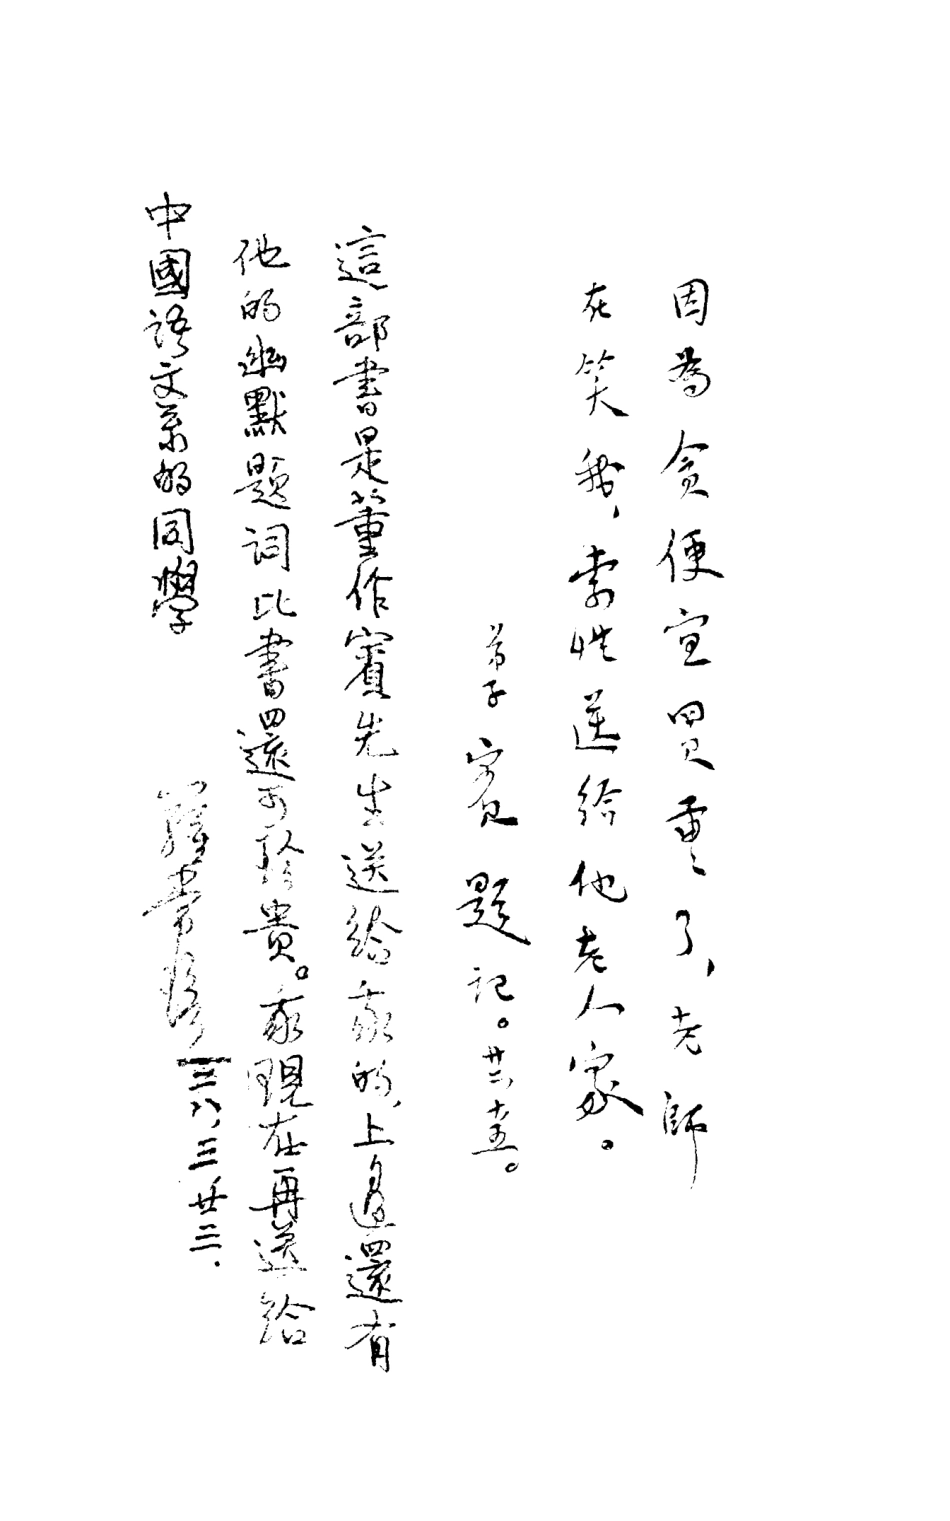 因為貪便宜買重了,老師
在笑我,索性送給他老人家。
弟子賓題記。廿二、十、五。
這部書是董作賓先生送給我的,上邊還有
他的幽默題詞比書還可珍貴。我現在再送給
中國語文系的同學
羅常培
三八,三廿三.